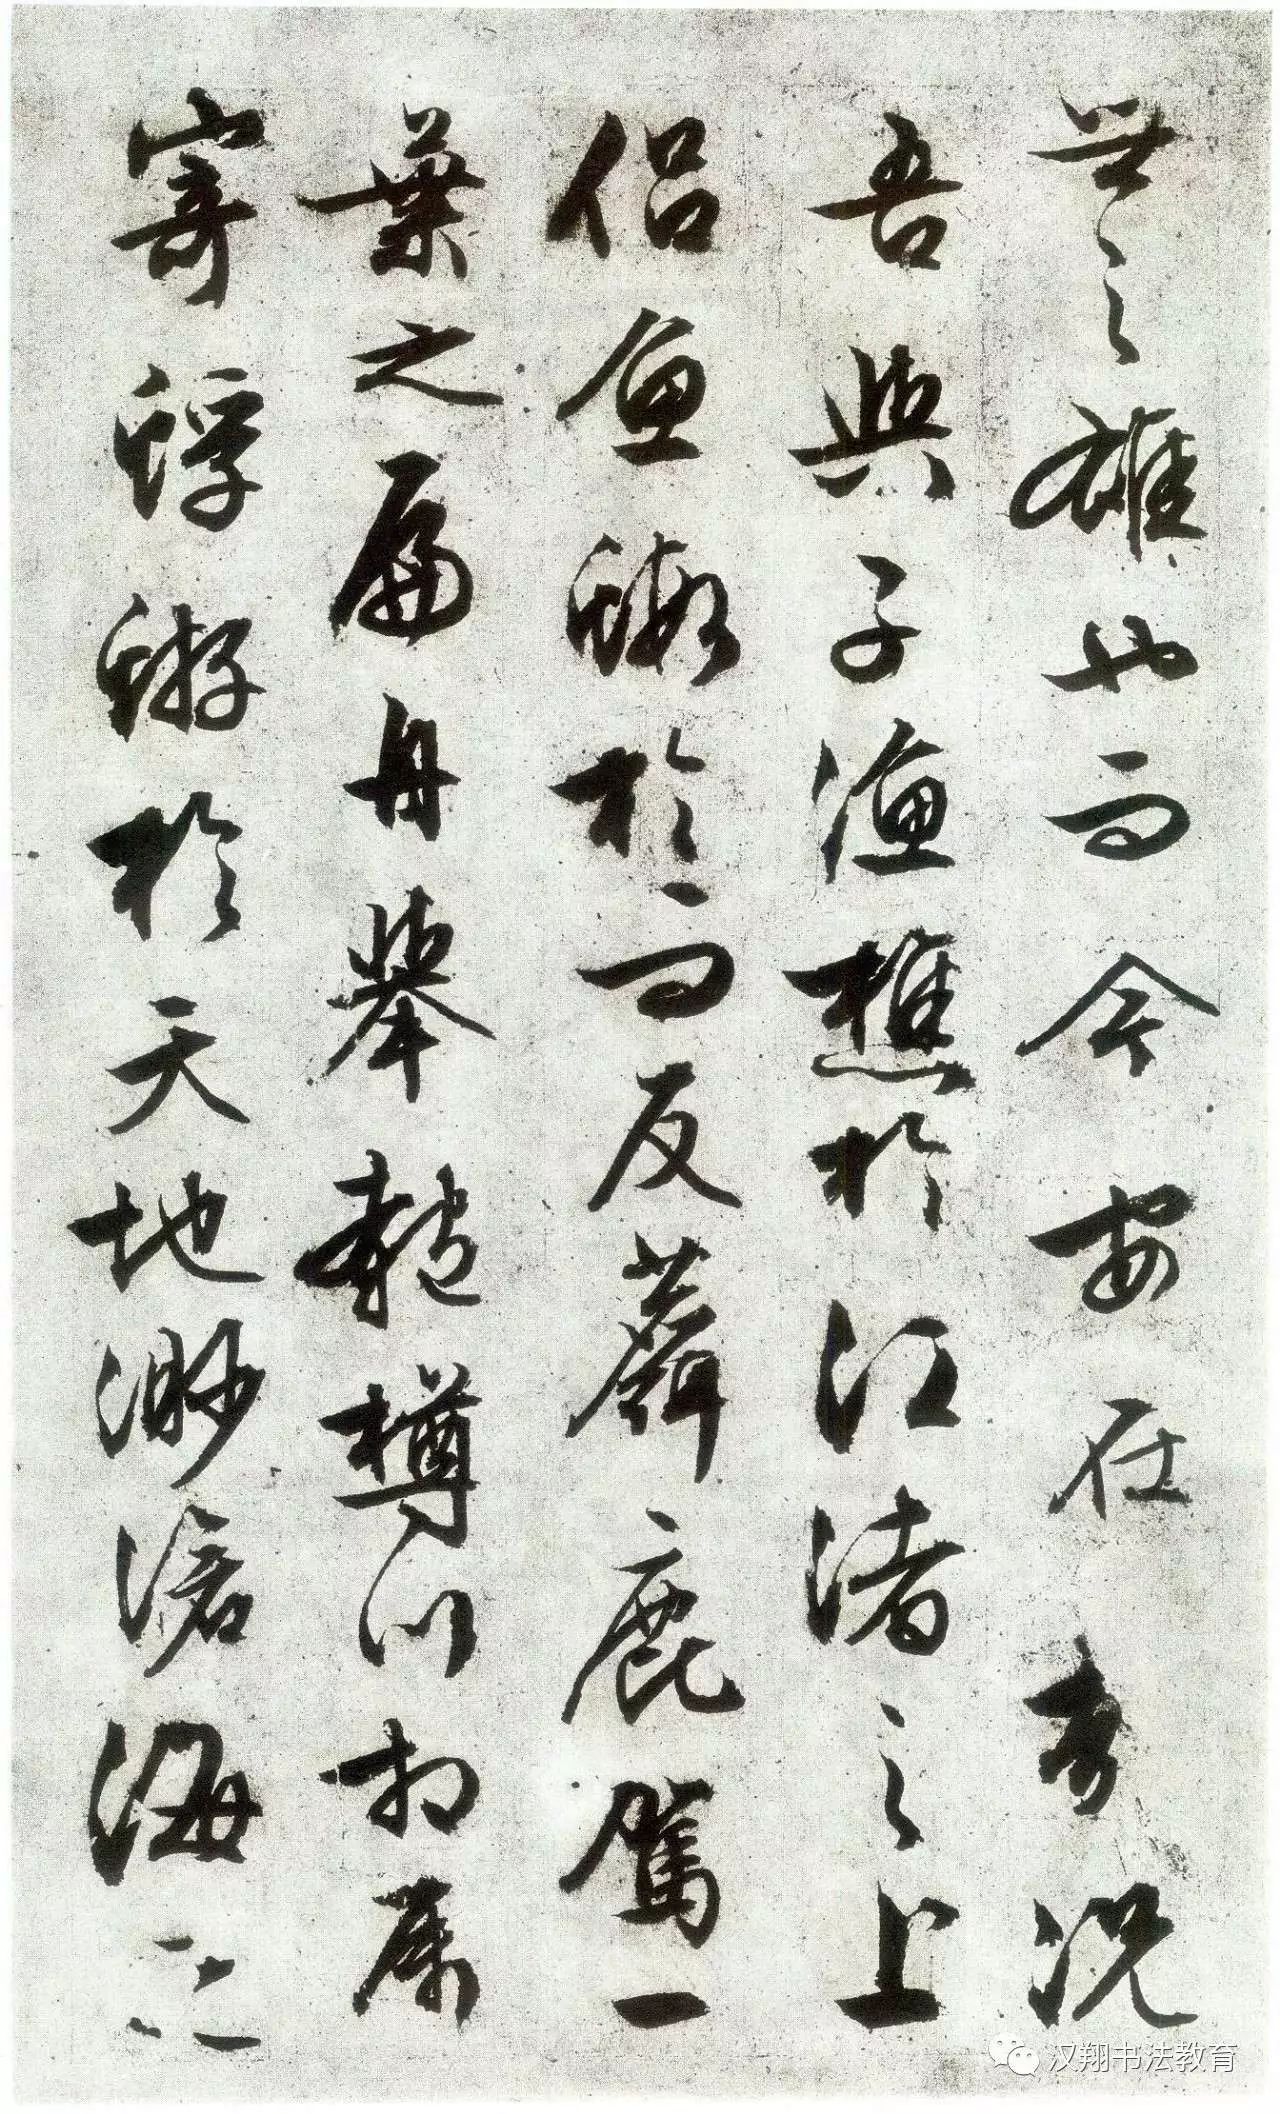 世之雄也而今安在哉况
吾與子漁樵於江渚之上
侣魚蝦於而友麋鹿駕一
葉之扁舟舉匏樽以相属
寄蜉蝣於天地渺滄海之
汉翔书法教育